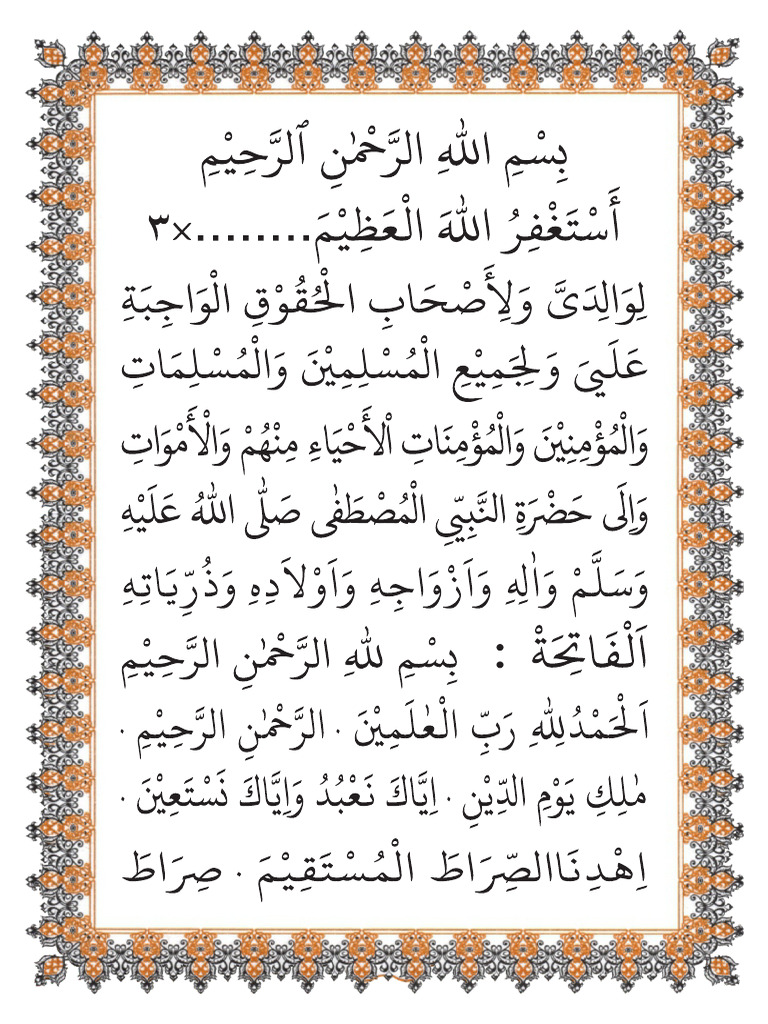 بِسْمِ اللهِ الرَّحْمٰنِ ٱلرَّحِيْمِ
أَسْتَغْفِرُ اللهَ الْعَظِيْمَ........×٣
لِوَالِدَىَّ وَلِأَصْحَابِ الْحُقُوْقِ الْوَاجِبَةِ
عَلَـيَ وَلِجَمِيْعِ الْمُسْلِمِيْنَ وَالْمُسْلِمَاتِ
وَالْمُؤْمِنِيْنَ وَالْمُؤْمِنَاتِ اْلأَحْيَاءِ مِنْهُمْ وَالْأَمْوَاتِ
وَاِلَى حَضْرَةِ النَّبِيِّ الْمُصْطَفٰى صَلَّى اللهُ عَلَيْهِ
وَسَلَّمْ وَاٰلِهِ وَاَزْوَاجِهِ وَاَوْلاَدِهِ وَذُرِّيَاتِهِ
اَلْفَاتِحَةْ : بِسْمِ للهِ الرَّحْمٰنِ الرَّحِيْمِ
اَلْحَمْدُلِلهِ رَبِّ الْعٰلَمِيْنَ . الرَّحْمٰنِ الرَّحِيْمِ .
مٰلِكِ يَوْمِ الدِّيْنِ . اِيَّاكَ نَعْبُدُ وَاِيَّاكَ نَسْتَعِيْنَ .
اِهْدِنَاالصِّرَاطَ الْمُسْتَقِيْمَ . صِرَاطَ